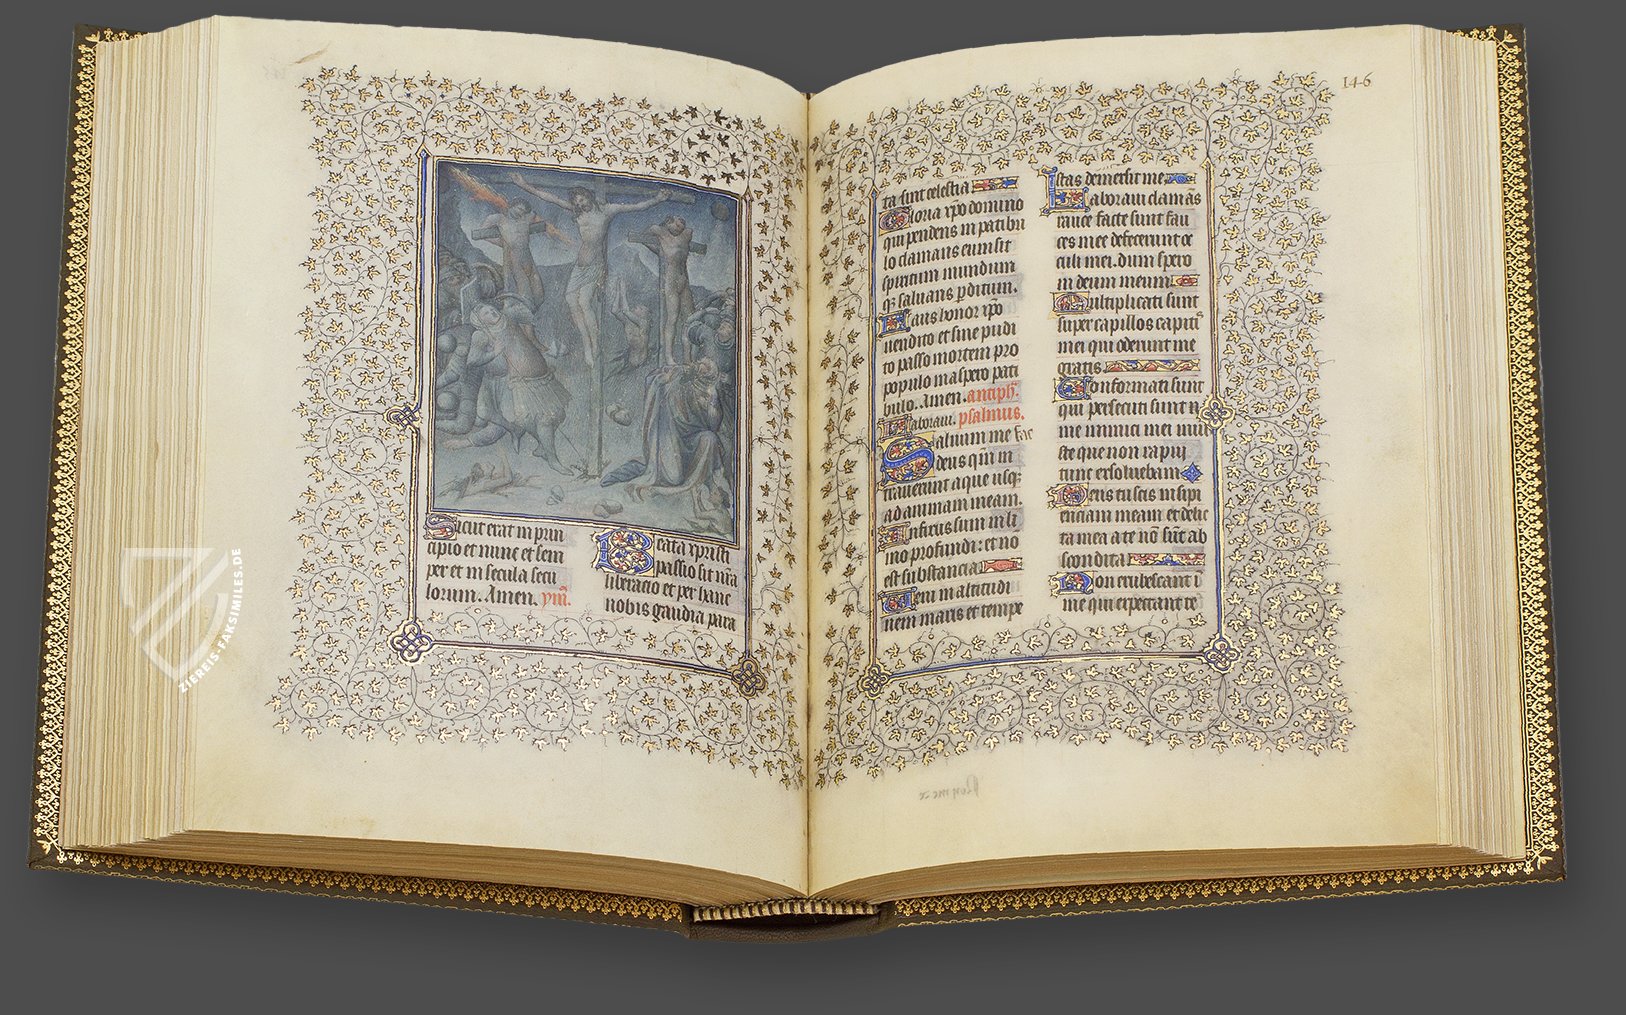 Sicut erat in prin
cipio et nunc et sem
per et in secula secu
lorum. Amen. ymñ.
Beata xpristi
passio sit nr̃a
liberacio et per hanc
nobis gaudia para
146
ta sint celestia
Gloria xp̃o domino
qui pendens in patibu
lo clamans emisit
spiritum mundum
q; saluans perditum.
Laus honor xp̃o
uendito et sine pudi
to passo mortem pro
populo in aspero pati
bulo. Amen. antiph̃.
Laboraui. psalmus.
Saluum me fac
deus qm̃ in
trauerunt aque usq;
ad animam meam.
Infixus sum in li
mo profundi: et nõ
est substancia
Ueni in altitudi
nem maris et tempe
stas demersit me
Laboraui clamãs
rauce facte sunt fau
ces mee defecerunt oc
culi mei. dum spero
in deum meum
Multiplicati sunt
super capillos capitis
mei qui oderunt me
gratis
Confortati sunt
qui persecuti sunt
me inimici mei iniu
ste que non rapui
tunc exsoluebam
Deus tu scis insipi
enciam meam et delic
ta mea a te nõ sũt ab
scondita
Non erubescant ĩ
me qui expectant te
ZIEREIS-FAKSIMILES.DE